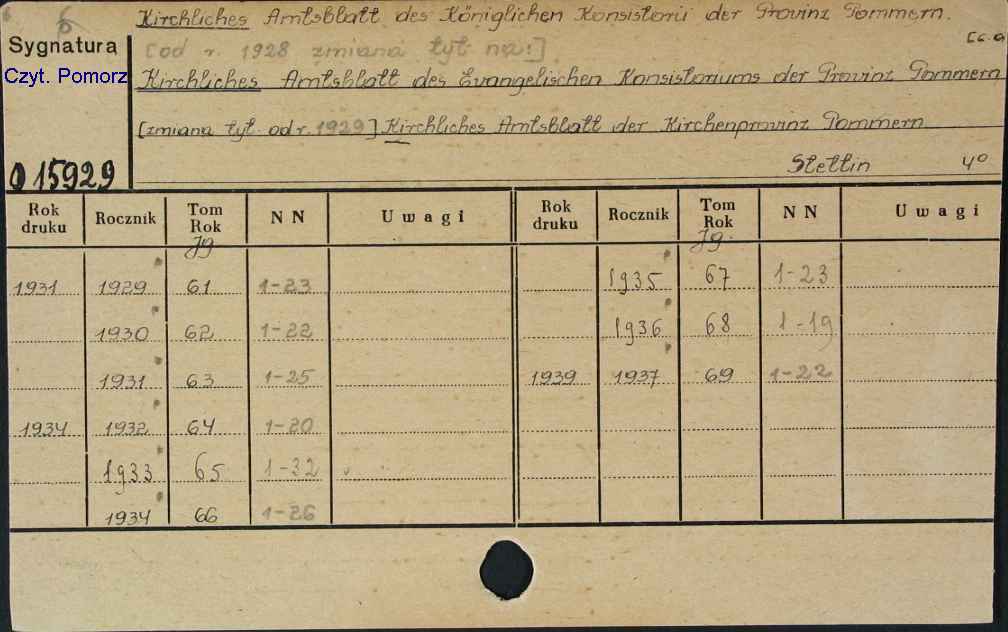 6
Kirchliches Amtsblatt des Königlichen Konsistorii der Provinz Pommern.
[c.d
Sygnatura
[od r. 1928 zmiana tyt. na:]
Czyt. Pomorz
Kirchliches Amtsblatt des Evangelischen Konsistoriums der Provinz Pommern
[zmiana tyt. od r. 1929] Kirchliches Amtsblatt der Kirchenprovinz Pommern
Stettin 4°
015929
Rok druku Rocznik Tom Rok NN Uwagi Rok druku Rocznik Tom Rok NN Uwagi
Jg. Jg.
1931 1929 61 1-23 1935 67 1-23
1930 62 1-22 1936 68 1-19
1931 63 1-25 1939 1937 69 1-22
1934 1932 64 1-20
1933 65 1-32
1934 66 1-26